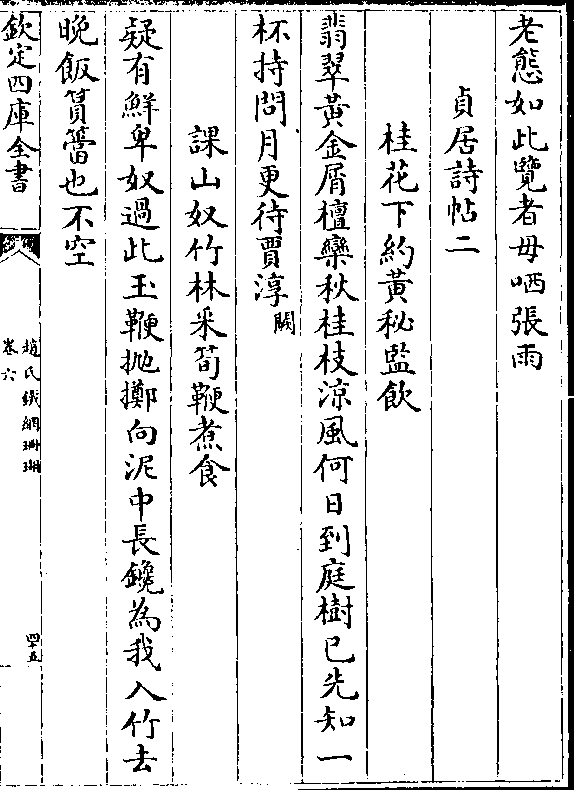 老態如此覽者毋哂張雨
貞居詩帖二
桂花下約黃秘監飲
翡翠黃金屑檀欒秋桂枝涼風何日到庭樹已先知一
杯持問月更待賈淳闕
課山奴竹林采筍鞭煮食
疑有鮮卑奴過此玉鞭抛擲向泥中長鑱為我入竹去
晚飯篔簹也不空
欽定四庫全書
趙氏鐵網珊瑚
卷六
四十五